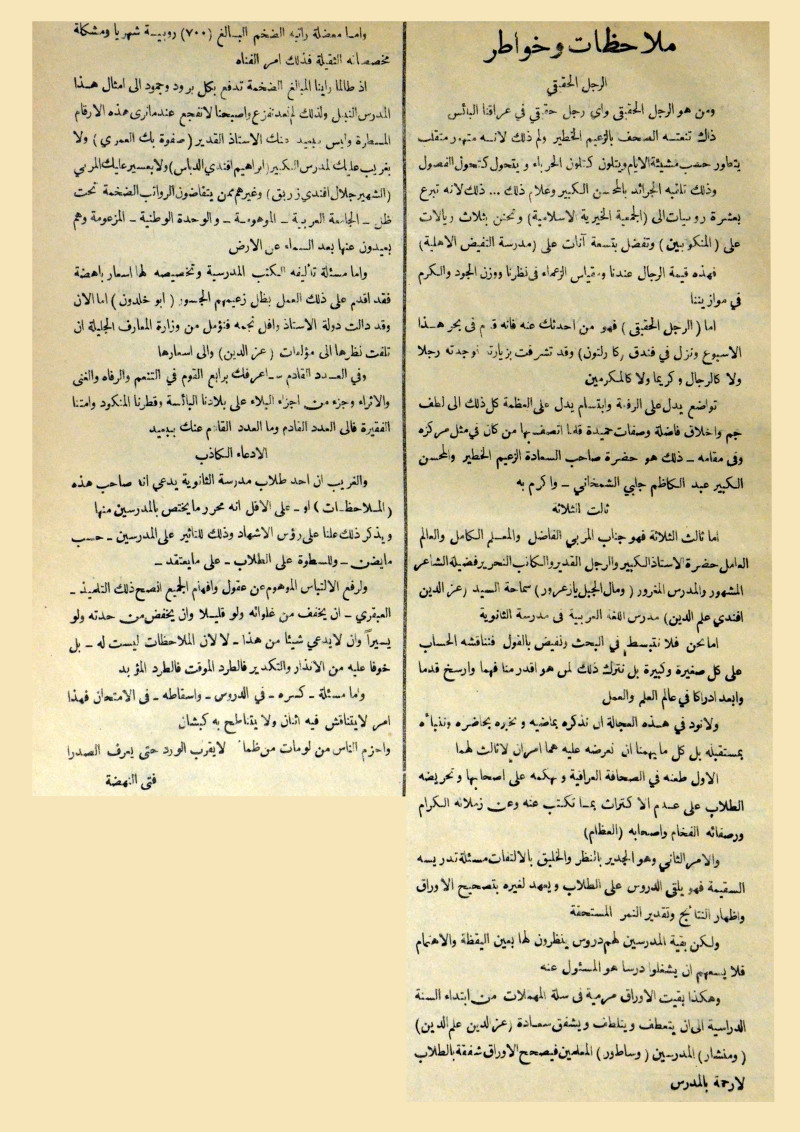 ملاحظات وخواطر
الرجل الحقيقي
ومن هو الرجل الحقيقي واي رجل حقيقي في عراقنا البائس
ذاك تنعته الصحف بالزعيم الخطير ولم ذلك لانه متهور متقلب
يتطور حسب مشيئة الايام ويتلون كتلون الحرباء ويتحول كتحول الفصول
وذلك تلقبه الجرائد بالمحسن الكبير وعلام ذلك ... ذلك لانه تبرع
بعشرة روبيات الى (الجمعية الخيرية الاسلامية) وتحنن بثلاث ريالات
على (المنكوبين) وتفضل بتسعة آنات على (مدرسة التفيض الاهلية)
فهذه قيمة الرجال عندنا ومقياس الزعماء في نظرنا ووزن الجود والكرم
في موازيننا
اما (الرجل الحقيقي) فهو من احدثك عنه فانه قدم في بحر هذا
الاسبوع ونزل في فندق (كارلتون) وقد تشرفت بزيارته فوجدته رجلا
ولا كالرجال وكريما ولا كالمكرمين
تواضع يدل على الرفعة وابتسام يدل على العظمة كل ذلك الى لطف
جم واخلاق فاضلة وصفات حميدة قلما اتصف بها من كان في مثل مركزه
وفي مقامه - ذلك هو حضرة صاحب السعادة الزعيم الخطير والمحسن
الكبير عبد الكاظم جلبي الشمخاني - واكرم به
ثالث الثلاثة
اما ثالث الثلاثة فهو جناب المربي الفاضل والمعلم الكامل والعالم
العامل حضرة الاستاذ الكبير والرجل القدير والكاتب النحرير فضيلة الشاعر
المشهور والمدرس المغرور (ومال الجبل يازعرور) سماحة السيد (عز الدين
افندي علم الدين) مدرس اللغة العربية في مدرسة الثانوية
اما نحن فلا نتبسط في البحث ونفيض بالقول فنناقشه الحساب
على كل صغيرة وكبيرة بل نترك ذلك لمن هو اقدر منا فهما وارسخ قدما
وابعد ادراكا في عالم العلم والعمل
ولانود في هذه العجالة ان نذكره بماضيه ونخبره بحاضره ونذبأه
بمستقبله بل كل ما يهمنا ان نعرضه عليه هما امران لا ثالث لهما
الاول طعنه في الصحافة العراقية وتهكمه على اصحابها وتحريضه
الطلاب على عدم الاكتراث بما تكتب عنه وعن زملائه الكرام
ورصفائه الفخام واصحابه (العظام)
والامر الثاني وهو الجدير بالنظر والخليق بالالتفات مسئلة تدريسه
السقيمة فهو يلقي الدروس على الطلاب ويعهد لغيره بتصحيح الاوراق
واظهار النتائج وتقدير النمر المستحقة
ولكن بقية المدرسين لهم دروس ينظرون لها بعين اليقظة والاهتمام
فلا يسعهم ان يشغلوا درسا هو المسئول عنه
وهكذا بقيت الاوراق مرمية في سلة المهملات من ابتداء السنة
الدراسية الى ان يتعطف ويتلطف ويشفق سعادة (عز الدين علم الدين)
(ومنشار) المدرسين (وساطور) المعلمين فيصحح الاوراق شفقة بالطلاب
لارحمة بالمدرس
واما معضلة راتبه الضخم البالغ (٧٠٠) روبية شهريا ومشكلة
مخصصاته الثقيلة فذلك امر الفناه
اذ طالما راينا المبالغ الضخمة تدفع بكل برود وجمود الى امثال هذا
المدرس النبيل ولذلك لم نعد نفزع واصبحنا لانفجع عندما نرى هذه الارقام
المسطرة وليس ببعيد عنك الاستاذ القدير (صفوة بك العمري) ولا
بغريب عليك المدرس الكبير (ابراهيم افندي الدباس) ولا بعسير عليك المربي
(الشهير جلال افندي زريق) وغيرهم ممن يتقاضون الرواتب الضخمة تحت
ظل - الجامعة العربية - الموهومة - والوحدة الوطنية - المزعومة وهم
بعيدون عنها بعد السماء عن الارض
واما مسئلة تاليفه الكتب المدرسية وتخصيصه لها اسعار باهضة
فقد اقدم على ذلك العمل بظل زعيمهم الجسور (ابو خلدون) اما الان
وقد دالت دولة الاستاذ وافل نجمه فنؤمل من وزارة المعارف الجليلة ان
تلفت نظرها الى مؤلفات (عز الدين) والى اسعارها
وفي العدد القادم ساعرفك برابع القوم في التنعم والرفاه والغنى
والاثراء وجزء من اجزاء البلاء على بلادنا البائسة وقطرنا المنكود وامتنا
الفقيرة فالى العدد القادم وما العدد القادم عنك ببعيد
الادعاء الكاذب
والغريب ان احد طلاب مدرسة الثانوية يدعي انه صاحب هذه
(الملاحظات) او - على الاقل انه محرر ما يختص بالمدرسين منها
ويذكر ذلك علنا على رؤس الاشهاد وذلك للتاثير على المدرسين - حسب
مايضن - وللسطوة على الطلاب - على مايعتقد -
ولرفع الالتباس الموهوم عن عقول وافهام الجميع انصح ذلك التلميذ -
العبقري - ان يخفف من غلوائه ولو قليلا وان يخفض من حدته ولو
يسيراً وان لا يدعي شيئا من هذا - لا لان الملاحظات ليست له - بل
خوفا عليه من الانذار والتكدير فالطرد الموقت فالطرد المؤبد
واما مسئلة - كسره - في الدروس - واسقاطه - في الامتحان فهذا
امر لايتناقش فيه اثنان ولا يتناطح به كبشان
واحزم الناس من لومات من ظمأ لايقرب الورد حتى يعرف الصدرا
فتى النهضة